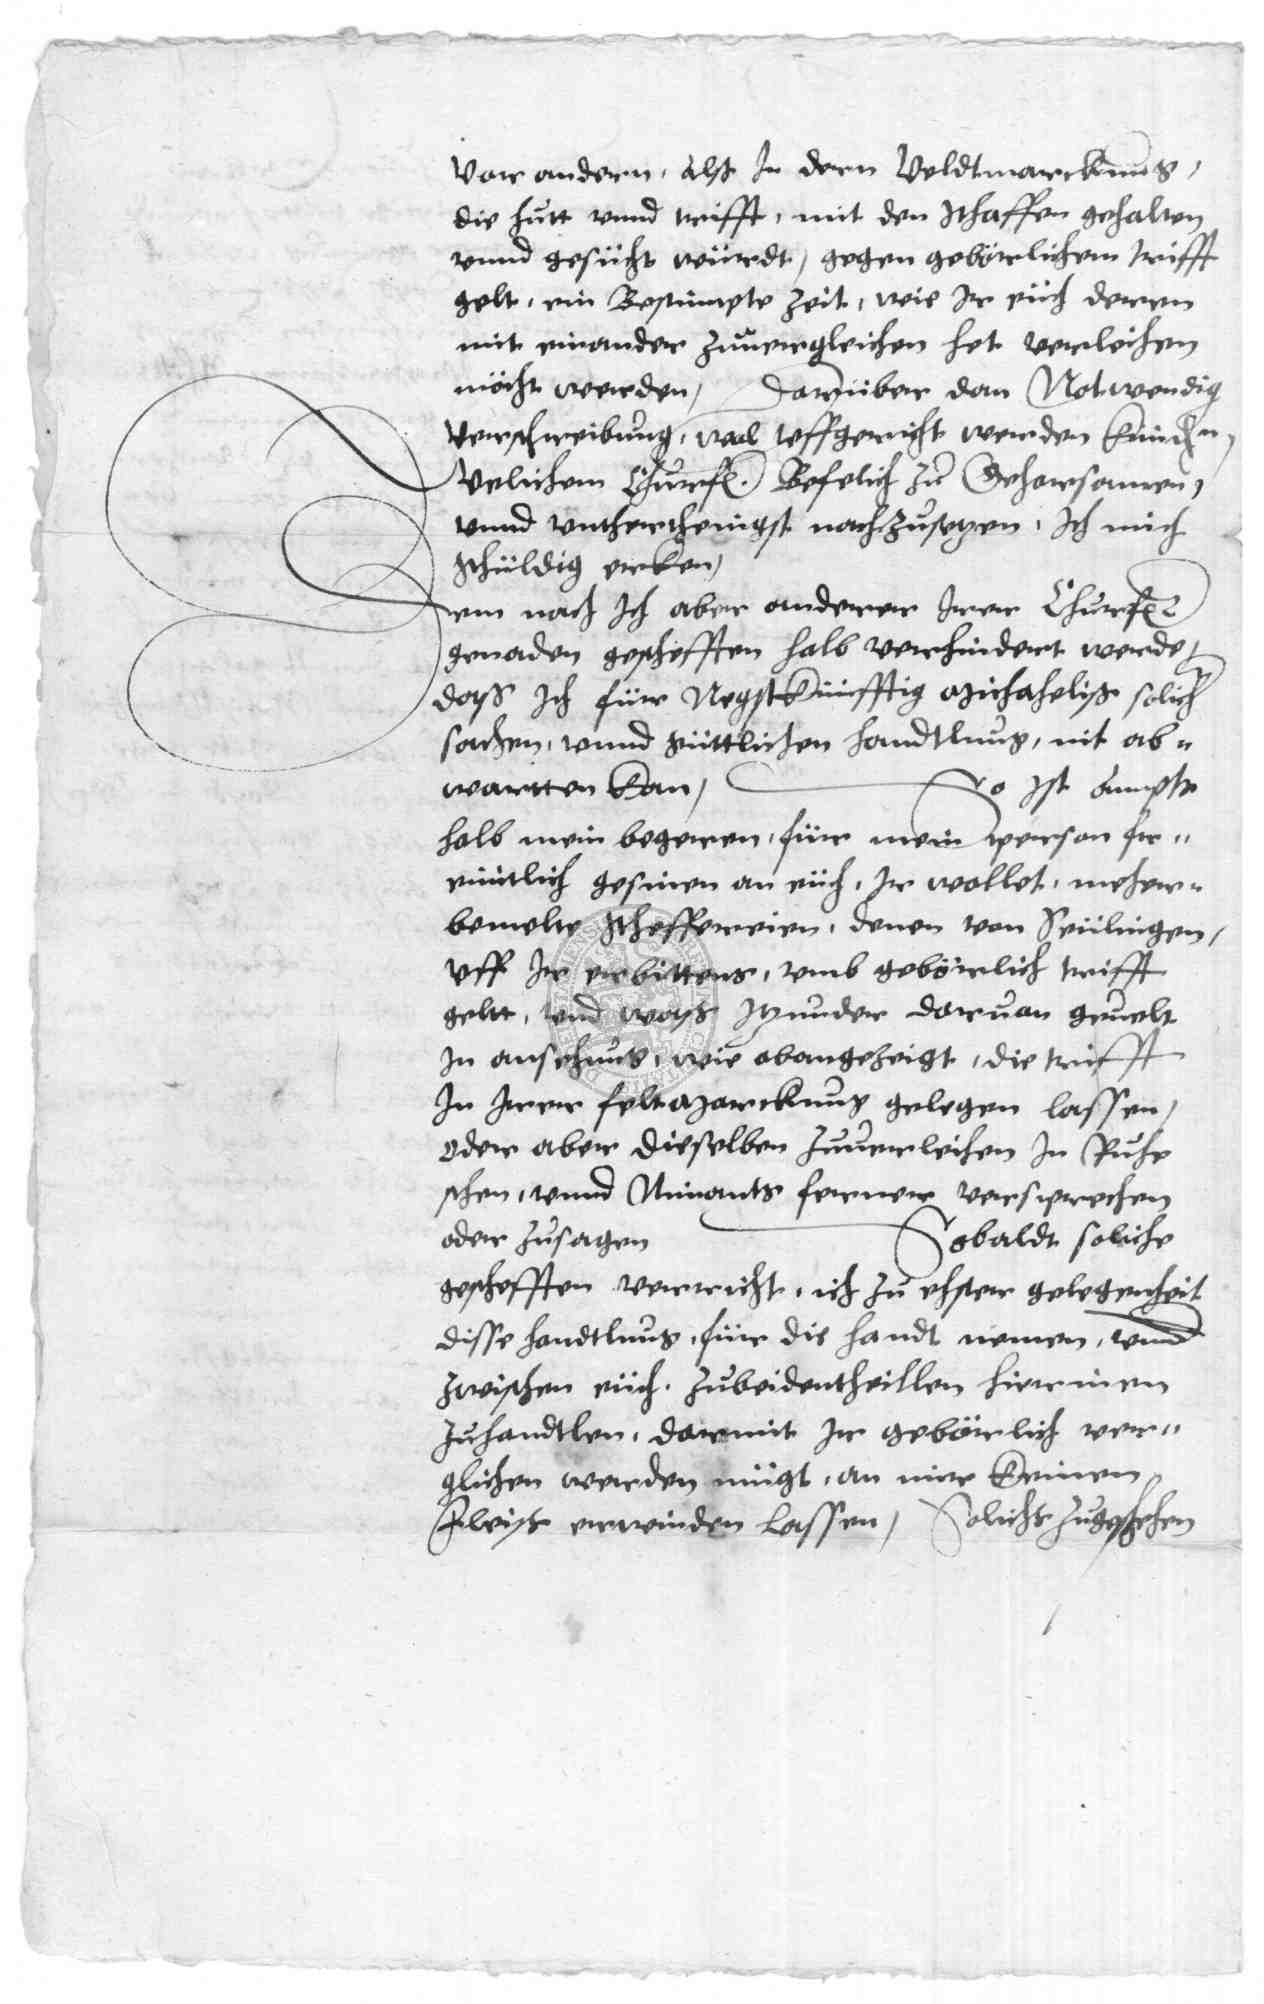 vor andern, alß In dern Veldtmarcknus,
die hutt vnnd trifft, mit den schaffen gehalten
vnnd gesucht würdt, gegen gebörlichem trifft
gelt, ein Bestimpte zeit, wie Ir euch deren
mit einander zuuergleichen het verleihen
möcht werden, Dorüber dan Notwendig
Verschreibung, wol vffgericht werden kündt,
Welichem Churf. Befelich zu Gehorsamen,
vnnd vntherthenigst nachzusetzen, Ich mich
schuldig erken,
Dem nach Ich aber anderer Irer Churf.
genaden geschefften halb verhindert werde,
daß Ich für Negstkünfftig Michahelis solich
sachen, vnnd güttlichen handtlung, nit ab-
wartten kan, So ist ampts
halb mein begeren, für mein person fr-
eüntlich gesinen an euch, Ir wollet, meher-
bemelte scheffereien, denen von Seülingen,
vff Ir erbittens, vmb gebörlich trifft
gelt, vnd weß Itzunder daruan geuelt
In ansehung, wie obangezeigt, die trifft
In Irer feltMarcknus gelegen lassen,
oder aber dieselben zuuerleihen In Ruhe
sthen, vnnd Nimants ferner versprechen
oder zusagen Sobaldt soliche
geschefften verricht, ich zu ehster gelegenheit
disse handtlung, für die handt nemen, vnnd
zwischen euch zubeidentheillen hierinnen
zuhandtlen, darmit Ir gebörlich ver-
glichen werden mügt, an mir keinen
Fleiß erwinden lassen, Solichs zugeschehen